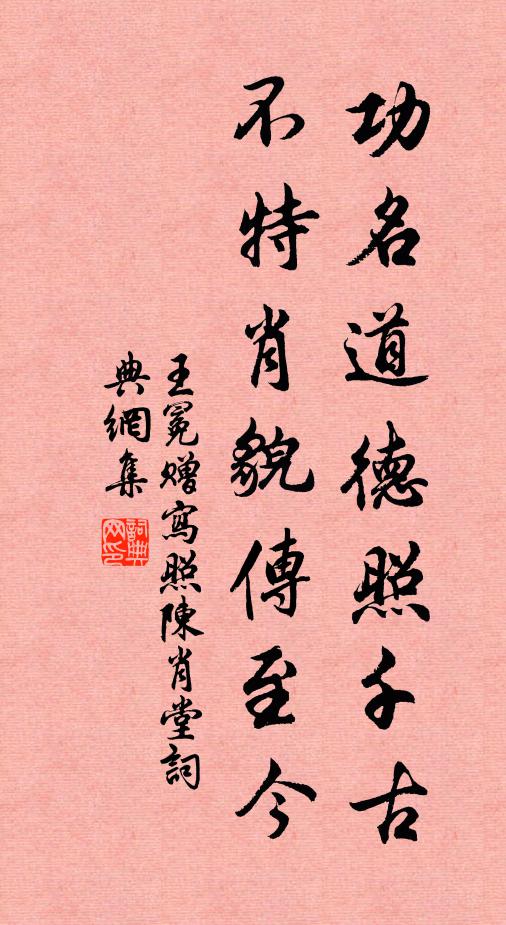 功名道德照千古
不特肖貌傳至今
王冕赠寫照陳肖堂詞
典網集
詞典
网印